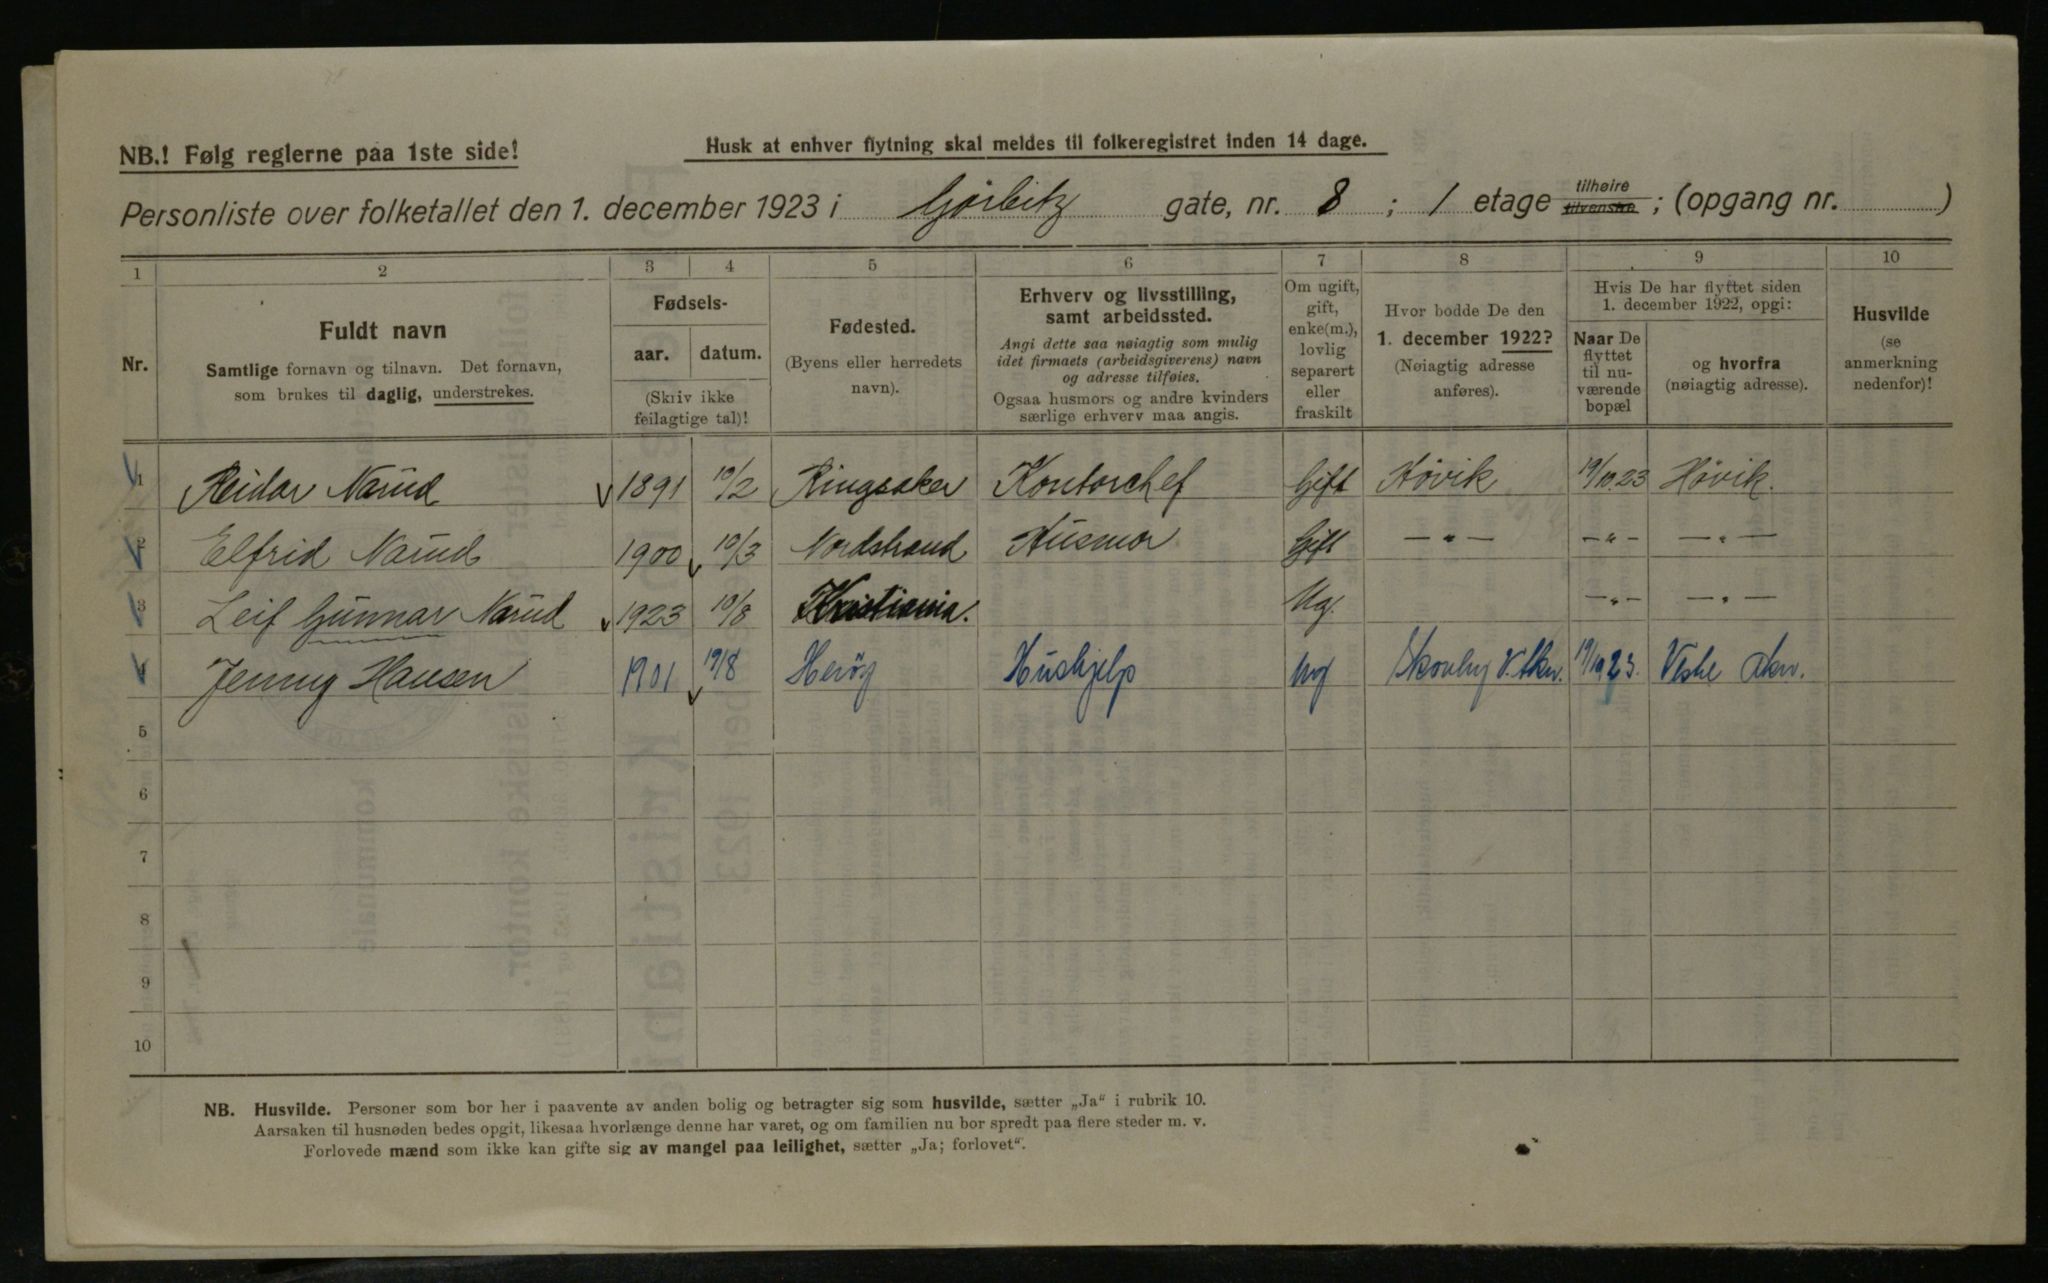 NB.! Følg reglerne paa 1ste side!
Husk at enhver flytning skal meldes til folkeregistret inden 14 dage.
Personliste over folketallet den 1. december 1923 i Gørbitz gate, nr. 8 ; 1 etage tilhøire tilvenstre ; (opgang nr. )
1 2 3 4 5 6 7 8 9 10
Nr.
Fuldt navn
Samtlige fornavn og tilnavn. Det fornavn,
som brukes til daglig, understrekes.
Fødsels-
aar. datum.
(Skriv ikke
feilagtige tal)!
Fødested.
(Byens eller herredets
navn).
Erhverv og livsstilling,
samt arbeidssted.
Angi dette saa nøiagtig som mulig
idet firmaets (arbeidsgiverens) navn
og adresse tilføies.
Ogsaa husmors og andre kvinders
særlige erhverv maa angis.
Om ugift,
gift,
enke(m.),
lovlig
separert
eller
fraskilt
Hvor bodde De den
1. december 1922?
(Nøiagtig adresse
anføres).
Hvis De har flyttet siden
1. december 1922, opgi:
Naar De
flyttet
til nu-
værende
bopæl
og hvorfra
(nøiagtig adresse).
Husvilde
(se
anmerkning
nedenfor)!
1 Reidar Narud 1891 10/2 Ringsaker Kontorchef Gift Høvik 19/10 23 Høvik.
2 Elfrid Narud 1900 10/3 Nordstrand Husmor Gift — " — — " — — " —
3 Leif Gunnar Narud 1923 10/8 Kristiania. Ug. — " — — " —
4 Jenny Hansen 1901 19/8 Herøy Hushjelp Ug V. Akr. 19/10 23. Vestre Akr.
5
6
7
8
9
10
NB. Husvilde. Personer som bor her i paavente av anden bolig og betragter sig som husvilde, sætter „Ja“ i rubrik 10.
Aarsaken til husnøden bedes opgit, likesaa hvorlænge denne har varet, og om familien nu bor spredt paa flere steder m. v.
Forlovede mænd som ikke kan gifte sig av mangel paa leilighet, sætter „Ja; forlovet“.